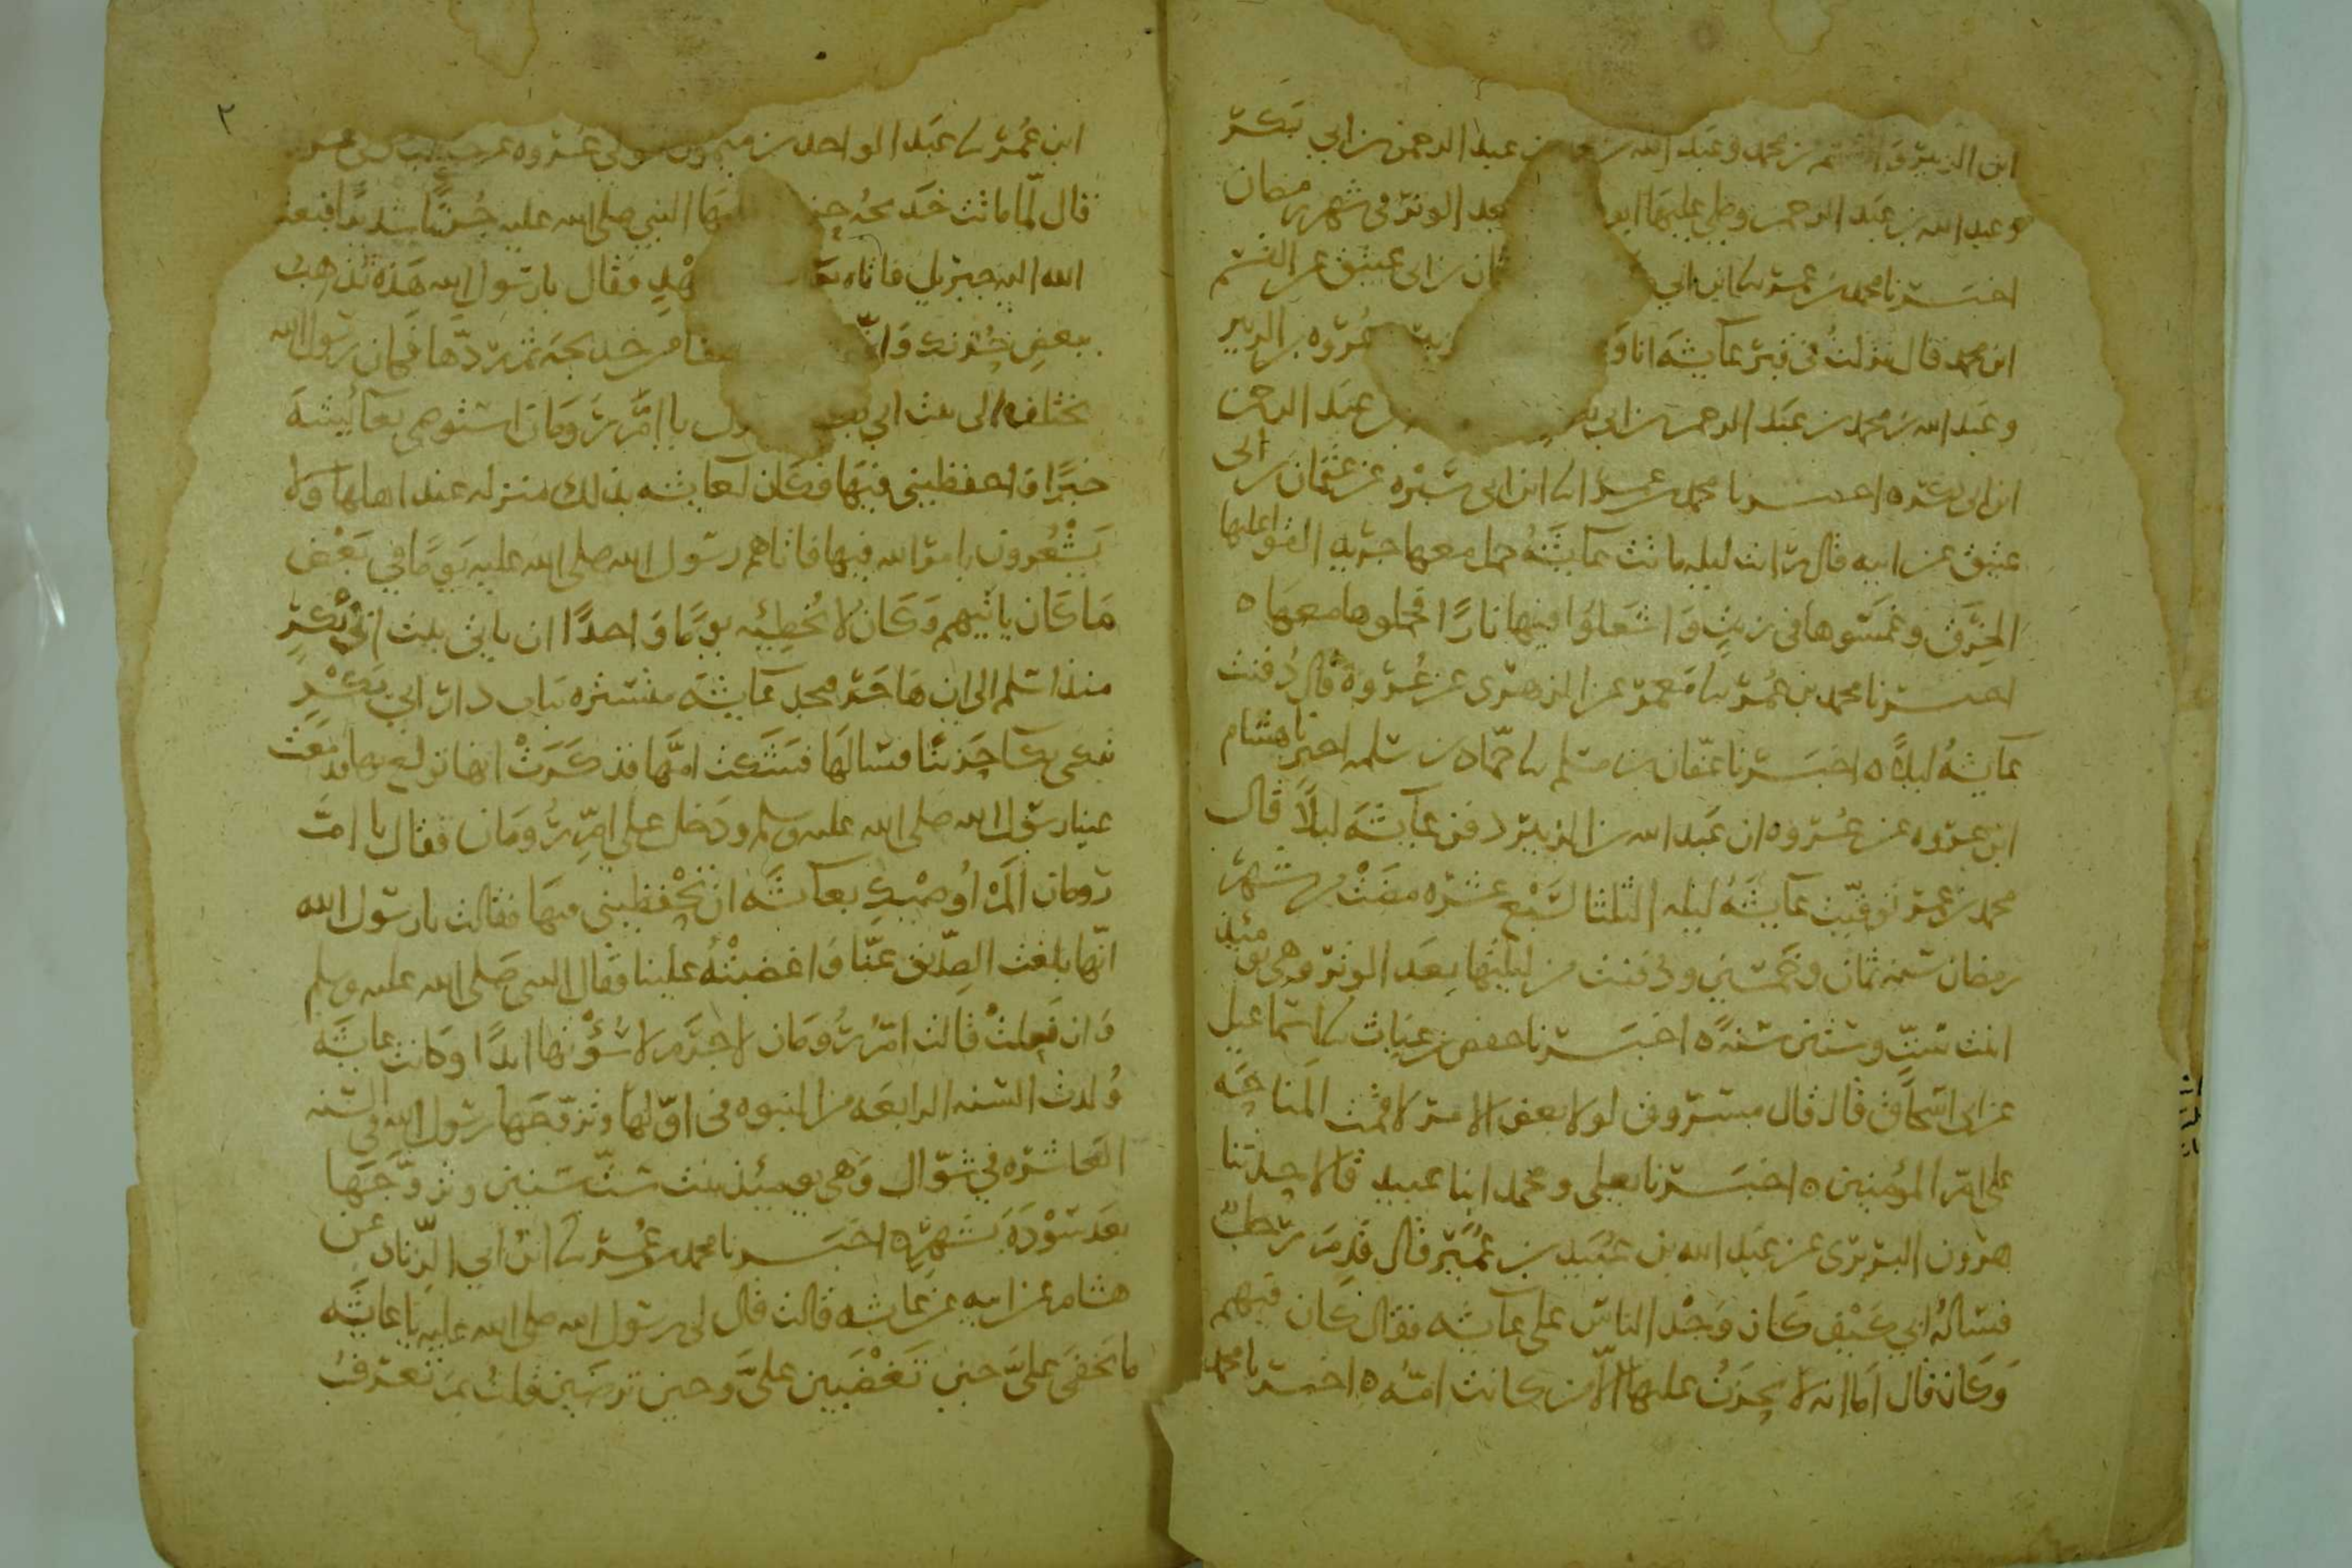 ابن الزبير والقسم بن محمد وعبد الله بن عبد الرحمن بن ابي بكر
وعبد الله بن عبد الرحمن وصلى عليها ابو بعد الوتر في شهر رمضان
اخبرنا محمد بن عمر نا ابن ابي عثمان بن ابي عتيق عن القسم
ابن محمد قال نزلت في قبر عائشة انا و عروة بن الزبير
وعبد الله بن محمد بن عبد الرحمن بن ابي بن عبد الرحمن
ابن ابي بكر ه اخبرنا محمد بن عمر نا ابن ابي سبره عن عثمان بن ابي
عتيق عن ابيه قال رايت ليله ماتت عائشة حمل معها جريد القوا عليها
الخرق وغمسوها في زيت واشعلوا فيها نارا فحملوها معها ه
اخبرنا محمد بن عمر نا معمر عن الزهري عن عروة قال دفنت
عائشة ليلا ه اخبرنا عفان بن مسلم نا حماد بن سلمه اخبرنا هشام
ابن عروه عن عروه ان عبد الله بن الزبير دفن عائشة ليلا قال
محمد بن عمر توفيت عائشة ليله الثلثا لسبع عشره مضت من شهر
رمضان سنه ثمان وخمسين ودفنت من ليلتها بعد الوتر وهي يومئذ
ابنت ست وستين سنة ه اخبرنا حفص بن غياث نا اسماعيل
عن ابي اسحاق قال قال مسروق لولا بعض الامر لاقمت المناحة
على ام المؤمنين ه اخبرنا يعلى ومحمد ابنا عبيد قالا حدثنا
هرون البربري عن عبد الله بن عبيد بن عمير قال قدم رجل
فساله ابي كيف كان وجد الناس على عائشه فقال كان فيهم
وكان قال اما انه لا يحزن عليها الا من كانت امه ه اخبرنا محمد
ابن عمر نا عبد الواحد بن ميمون مولى عروه عن حبيب مولى عروه
قال لما ماتت خديجه حزن عليها النبي صلى الله عليه حزنا شديدا فبعث
الله اليه جبريل فاتاه مهد فقال يا رسول الله هذه تذهب
ببعض حزنك وان من خديجه ثم ردها فكان رسول الله
يختلف الى بيت ابي بكر ويقول يا ام رومان استوصي بعائشة
خيرا واحفظيني فيها فكان لعائشه بذلك منزله عند اهلها ولا
يشعرون بامر الله فيها فاتاهم رسول الله صلى الله عليه يوما في بعض
ما كان ياتيهم وكان لا يخطيه يوما واحدا ان ياتي بيت ابي بكر
منذ اسلم الى ان هاجر فيجد عائشة متستره بباب دار ابي بكر
تبكي بكا حزينا فسالها فشكت امها فذكرت انها تولع بها فدمعت
عينا رسول الله صلى الله عليه وسلم ودخل على ام رومان فقال يا ام
رومان الم اوصيك بعائشه ان تحفظيني فيها فقالت يا رسول الله
انها بلغت الصديق عنا واغضبته علينا فقال النبي صلى الله عليه وسلم
وان فعلت قالت ام رومان لا جرم لا سؤتها ابدا وكانت عائشة
ولدت السنه الرابعه من النبوه في اولها وتزوجها رسول الله في السنه
العاشره في شوال وهي يومئذ بنت ست سنين وتزوجها
بعد سودة بشهر ه اخبرنا محمد بن عمر نا ابن ابي الزناد عن
هشام عن ابيه عن عائشه قالت قال لي رسول الله صلى الله عليه يا عائشه
ما يخفى علي حين تغضبين علي وحين ترضين قلت بم تعرف